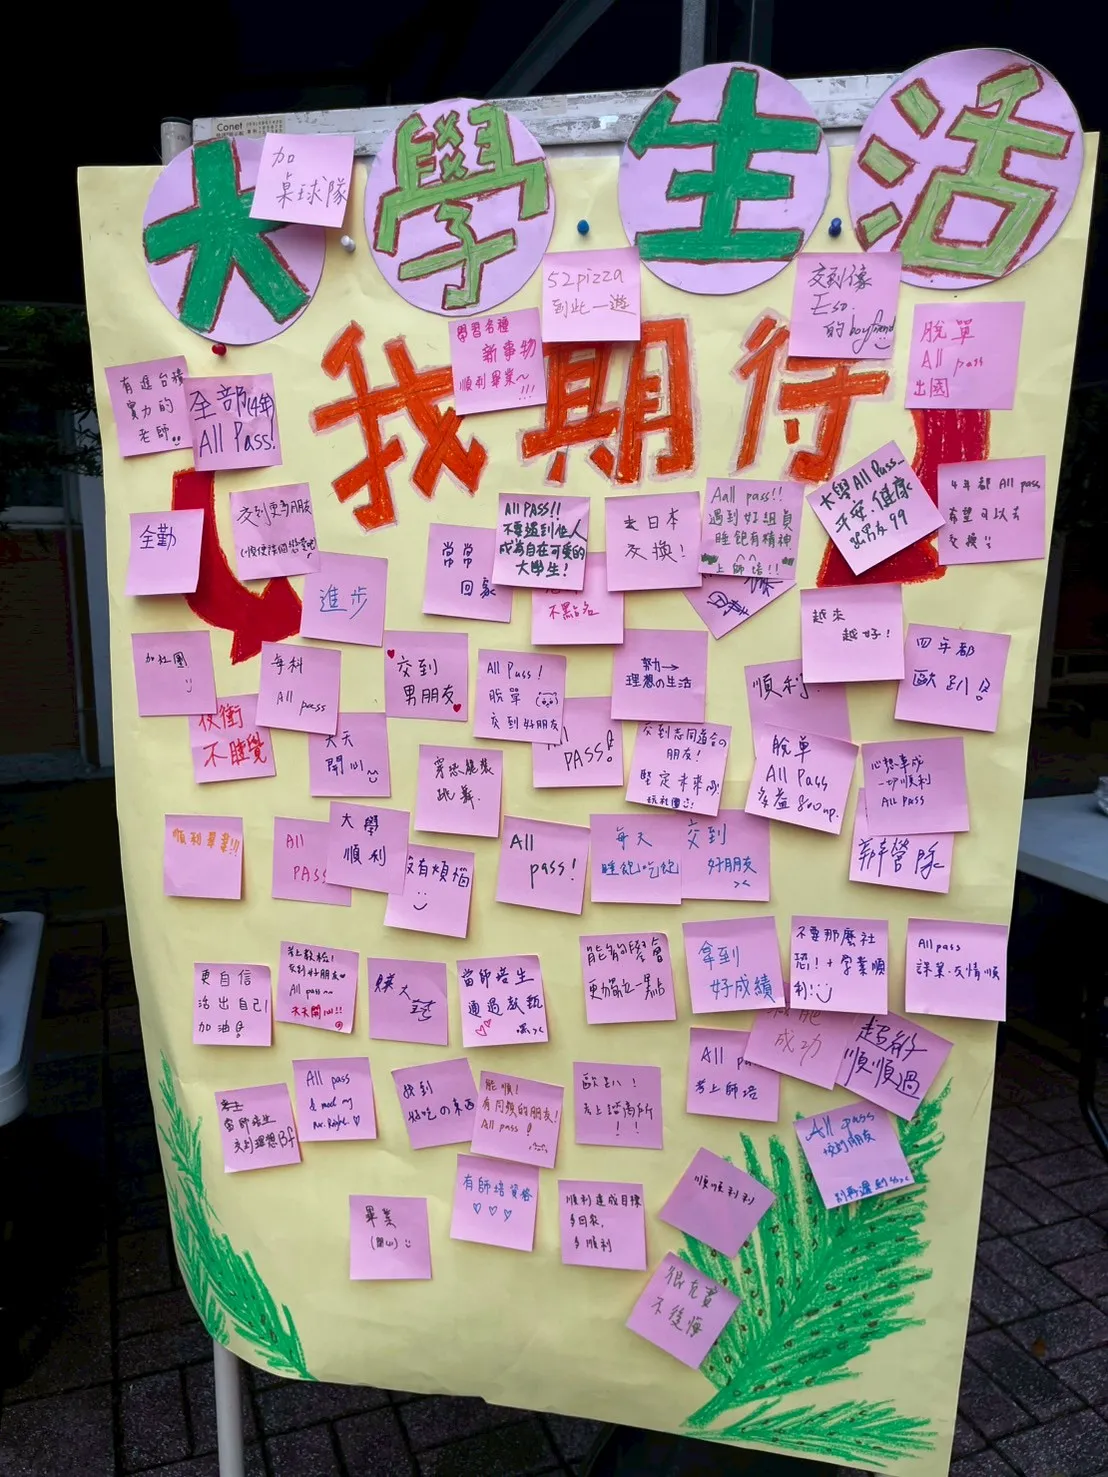 Conet
大學生活
加
桌球隊
我期待
52pizza
到此一遊
交到像
Eso.
的boyfriend
學習各種
新事物
順利畢業～
!!!
脫單
All pass
出國
有進台積
實力的
老師
全部(4年)
All Pass!
全勤
交到更多朋友
進步
常常
回家
All PASS!!
不要遇到怪人
成為自在可愛的
大學生!
去日本
交換!
Aall pass!!
遇到好組員
睡飽有精神
上師培!!
大學All Pass
平安、健康
跟男友99
4年都All pass
希望可以去
交換!!
不點名
越來
越好!
四年都
歐趴!
加社團
每科
All pass
不睡覺
天天
開心
交到
男朋友
All Pass!
脫單
交到好朋友
努力→
理想の生活
順利!
PASS!
穿恐龍裝
跳舞.
交到志同道合の
朋友!
堅定未來
脫單
All Pass
心想事成
一切順利
All pass
順利畢業!!!
All
PASS
大學
順利
沒有煩惱
All
pass!
每天
睡飽吃飽
交到
好朋友
><
更自信
活出自己!
加油!
考上教檢!
交到好朋友
All pass~~
天天開心!!
賺大錢
當師培生
通過教甄
更靠近一點點
拿到
好成績
不要那麼社
恐!+學業順
利!
All pass
課業、友情順
成功
超級
順順過
All pa
考上師培
當師培生
交到理想Bf
All pass
& meet my
Mr. Right.
找到
好吃の東西
能順!
有同頻的朋友!
All pass!
歐趴!
考上諮商所
!!!
All pass
有師培資格
畢業
(開心)
順利達成目標
多回家,
多順利
順順利利
很充實
不後悔